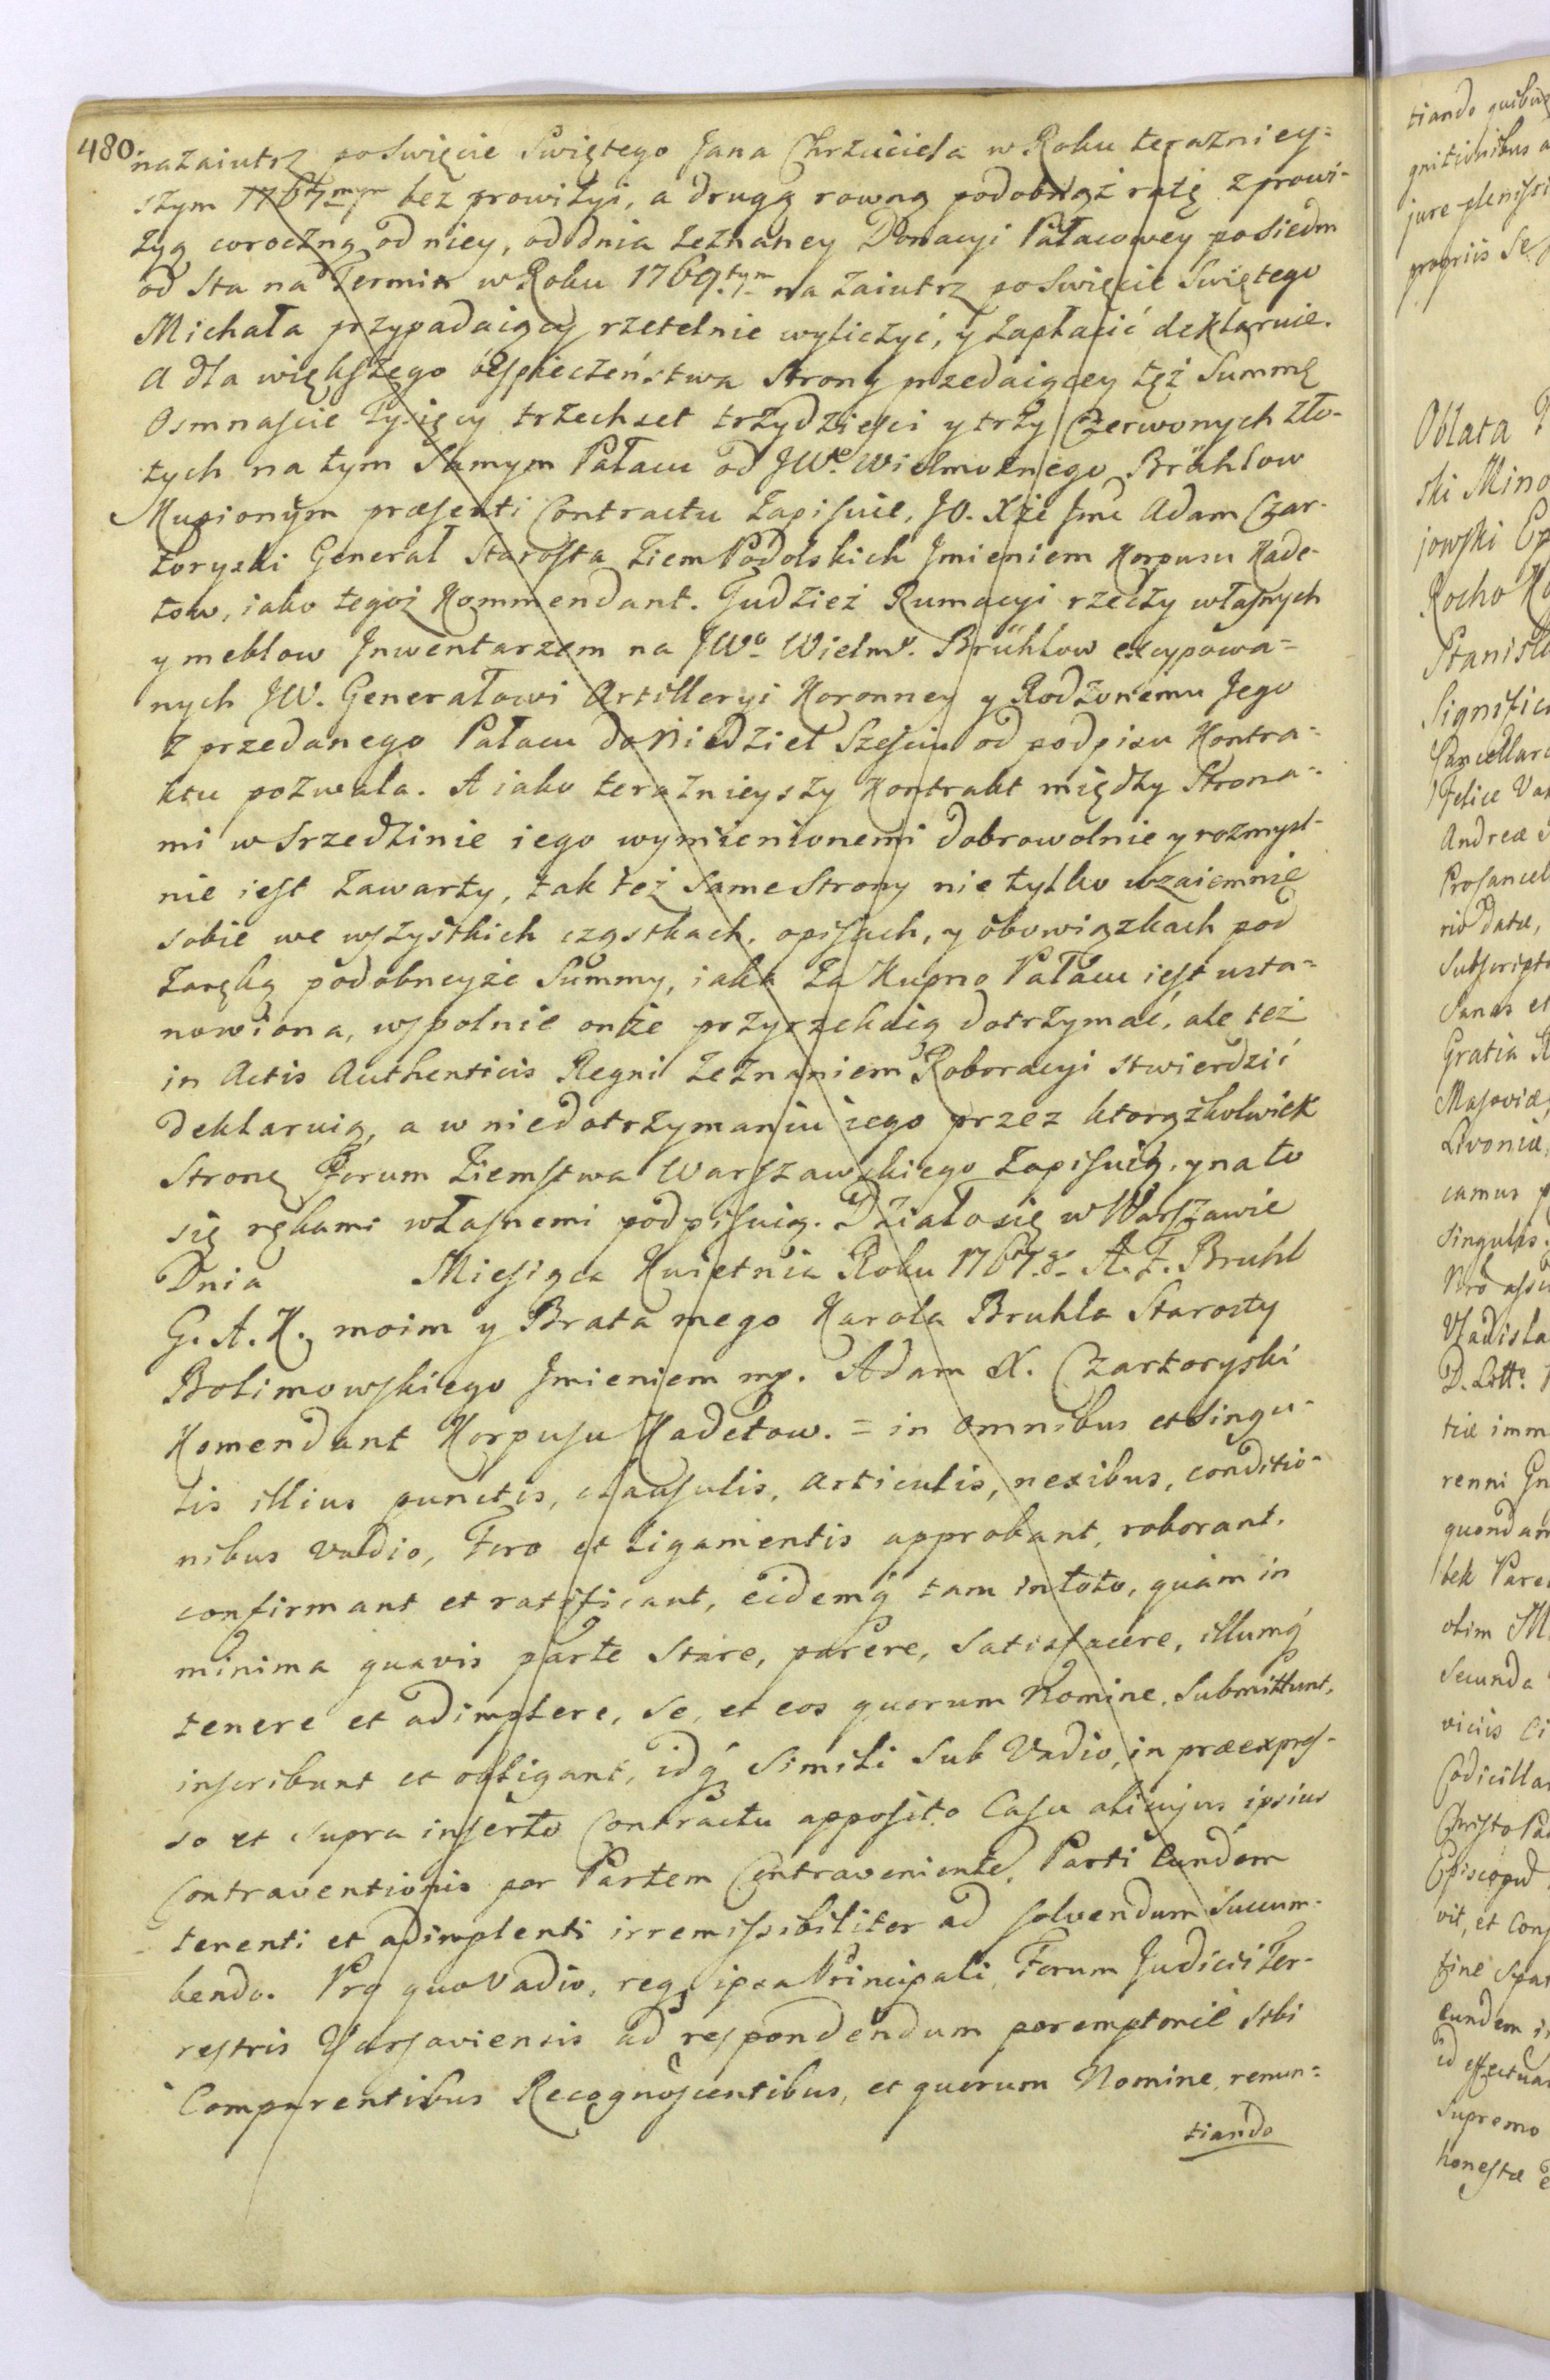 480.
nazaiutrz poswięcie Swiętego Jana Chrzciciela w Roku terazniey=
szym 1767mym bez prowizyi, a drugą rowną podobnąż ratę z prowi-
zyą coroczną od niey, od dnia zeznaney Donacyi Pałacowey po siedm
od Sta na Termin w Roku 1769.tym na zaiutrz poswięcie Swiętego
Michała przypadaiący rzetelnie wyliczyć, y zapłacić deklaruie.
A dla większego bespieczeństwa Strony przedaiącey tęż Summę
Osmnaście Tysięcy trzechset trzydzieści y trzy Czerwonych zło-
tych na tym Samym Pałacu od JWo. Wielmożnego Brühlow
Kupionym præsenti Contractu zapisuie, JO. Xże Jmć Adam Czar-
toryski Generał Starosta Ziem Podolskich Jmieniem Korpusu Kade-
tow, iako tegoż Kommendant. Tudzież Rumacyi rzeczy własnych
y meblow Jnwentarzem na JWo Wielmo. Brühlow excypowa=
nych JW. Generałowi Artilleryi Koronney y Rodzonemu Jego
z przedanego Pałacu do Niedziel Sześciu od podpisu Kontra=
ktu pozwala. A iako teraznieyszy Kontrakt między Strona=
mi w srzedzinie iego wymienionemi dobrowolnie y rozmysl-
nie iest zawarty, tak też same Strony nie tylko wzaiemnie
sobie we wszystkich cząstkach, opisach, y obowiązkach pod
zaręką podobneyże Summy, iaka za Kupno Pałacu iest usta=
nowiona, wspolnie onże przyrzekaią dotrzymać, ale też
in Actis Authenticis Regni zeznaniem Roboracyi stwierdzić
deklaruią, a w niedotrzymaniu iego przez ktorążkolwiek
Stronę Forum Ziemstwa Warszawskiego zapisuią, y na to
się rękami własnemi podpisuią. Działosię w Warszawie
Dnia Miesiąca Kwietnia Roku 1767.go A. F. Bruhl
G. A. K. moim y Brata mego Karola Bruhla Starosty
Bolimowskiego Jmieniem mp. Adam X. Czartoryski
Komendant Korpusu Kadetow. = in omnibus et Singu-
lis illius punctis, clausulis, articulis, nexibus, conditio-
nibus vadio, Foro et ligamentis approbant, roborant,
confirmant et ratificant, eidemq́ tam in toto, quàm in
minima quavis parte Stare, parere, Satisfacere, illumq́
tenere et adimplere, se, et eos quorum Nomine, Submittunt,
inscribunt et obligant, idq́ Simili Sub Vadio, in præexpres-
so et Supra inserto Contractu apposito Casu alicujus ipsius
Contraventionis per Partem Contravenientē, Parti Eundem
tenenti et adimplenti irremissibiliter ad solvendum Succum-
bendo. Pro quo Vadio, reqꝫ ipsa Principali, Forum Judicii Ter-
restris Varsaviensis ad respondendum peremptoriè Sibi
Comparentibus Recognoscentibus, et quorum Nomine, renun=
tiando

tiando quibus
gnitionibus
jure plenissi
propriis Se
Oblata
ski Mino
jowski Ep
Rocho Ko
Stanisla
Significa
Cancellar
Felice Var
Andreæ
Procancel
rio datæ,
Subscript
Sanas et
Gratia
Masoviæ,
Livoniæ,
camus
Singulis
Nro
Vladisla
D. Litte.
tiæ imm
renni
quondam
bek Pare
olim
Secunda
viciis
Codicilla
Christo Pa
Episcopu
vit, et Con
fine
eundem
id effectua
Supremo
honestæ